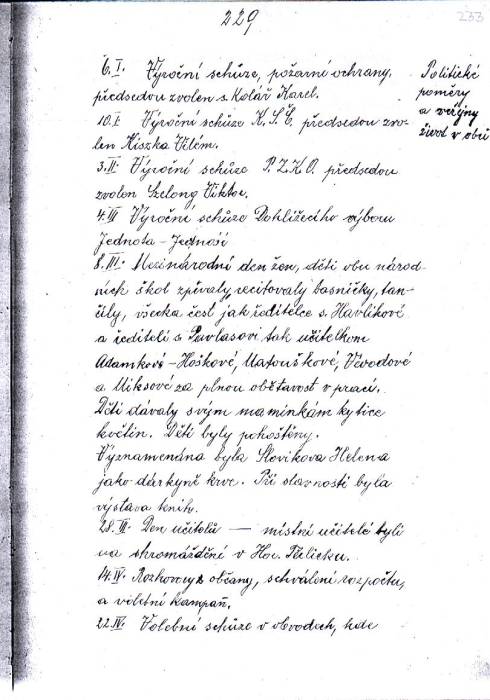 229
233
Politické
poměry
a veřejny
život v obci
6.I. Výroční schůze, požarní ochrany,
předsedou zvolen s. Kolář Karel.
10.I Výroční schůze K.S.Č. předsedou zvo-
len Kiszka Vilém.
3.II Výroční schůze P.Z.K.O. předsedou
zvolen Szelong Viktor.
4.III Výroční schůze Dohlížecího výboru
Jednota - Jedność
8.III. Mezinárodní den žen, děti obu národ-
ních škol zpívaly, recitovaly basničky, tan-
čily, všecka čest jak ředitelce s. Havlíkové
a řediteli s. Pavlasovi tak učitelkam
Adamkové - Hoškové, Matouškové, Vévodové
a Miksové za plnou obětavost v praci.
Děti dávaly svým maminkám kytice
květin. Děti byly pohoštěny.
Vyznamenána byla Slevikova Helena
jako dárkyně krve. Při slavnosti byla
výstava knih.
28.III. Den učitelů — místní učitelé byli
na shromáždění v Hor. Těrlicku.
14.IV. Rozhovory s občany, schválení rozpočtu,
a volební kampaň.
22.IV. Volební schůze v obvodech, kde